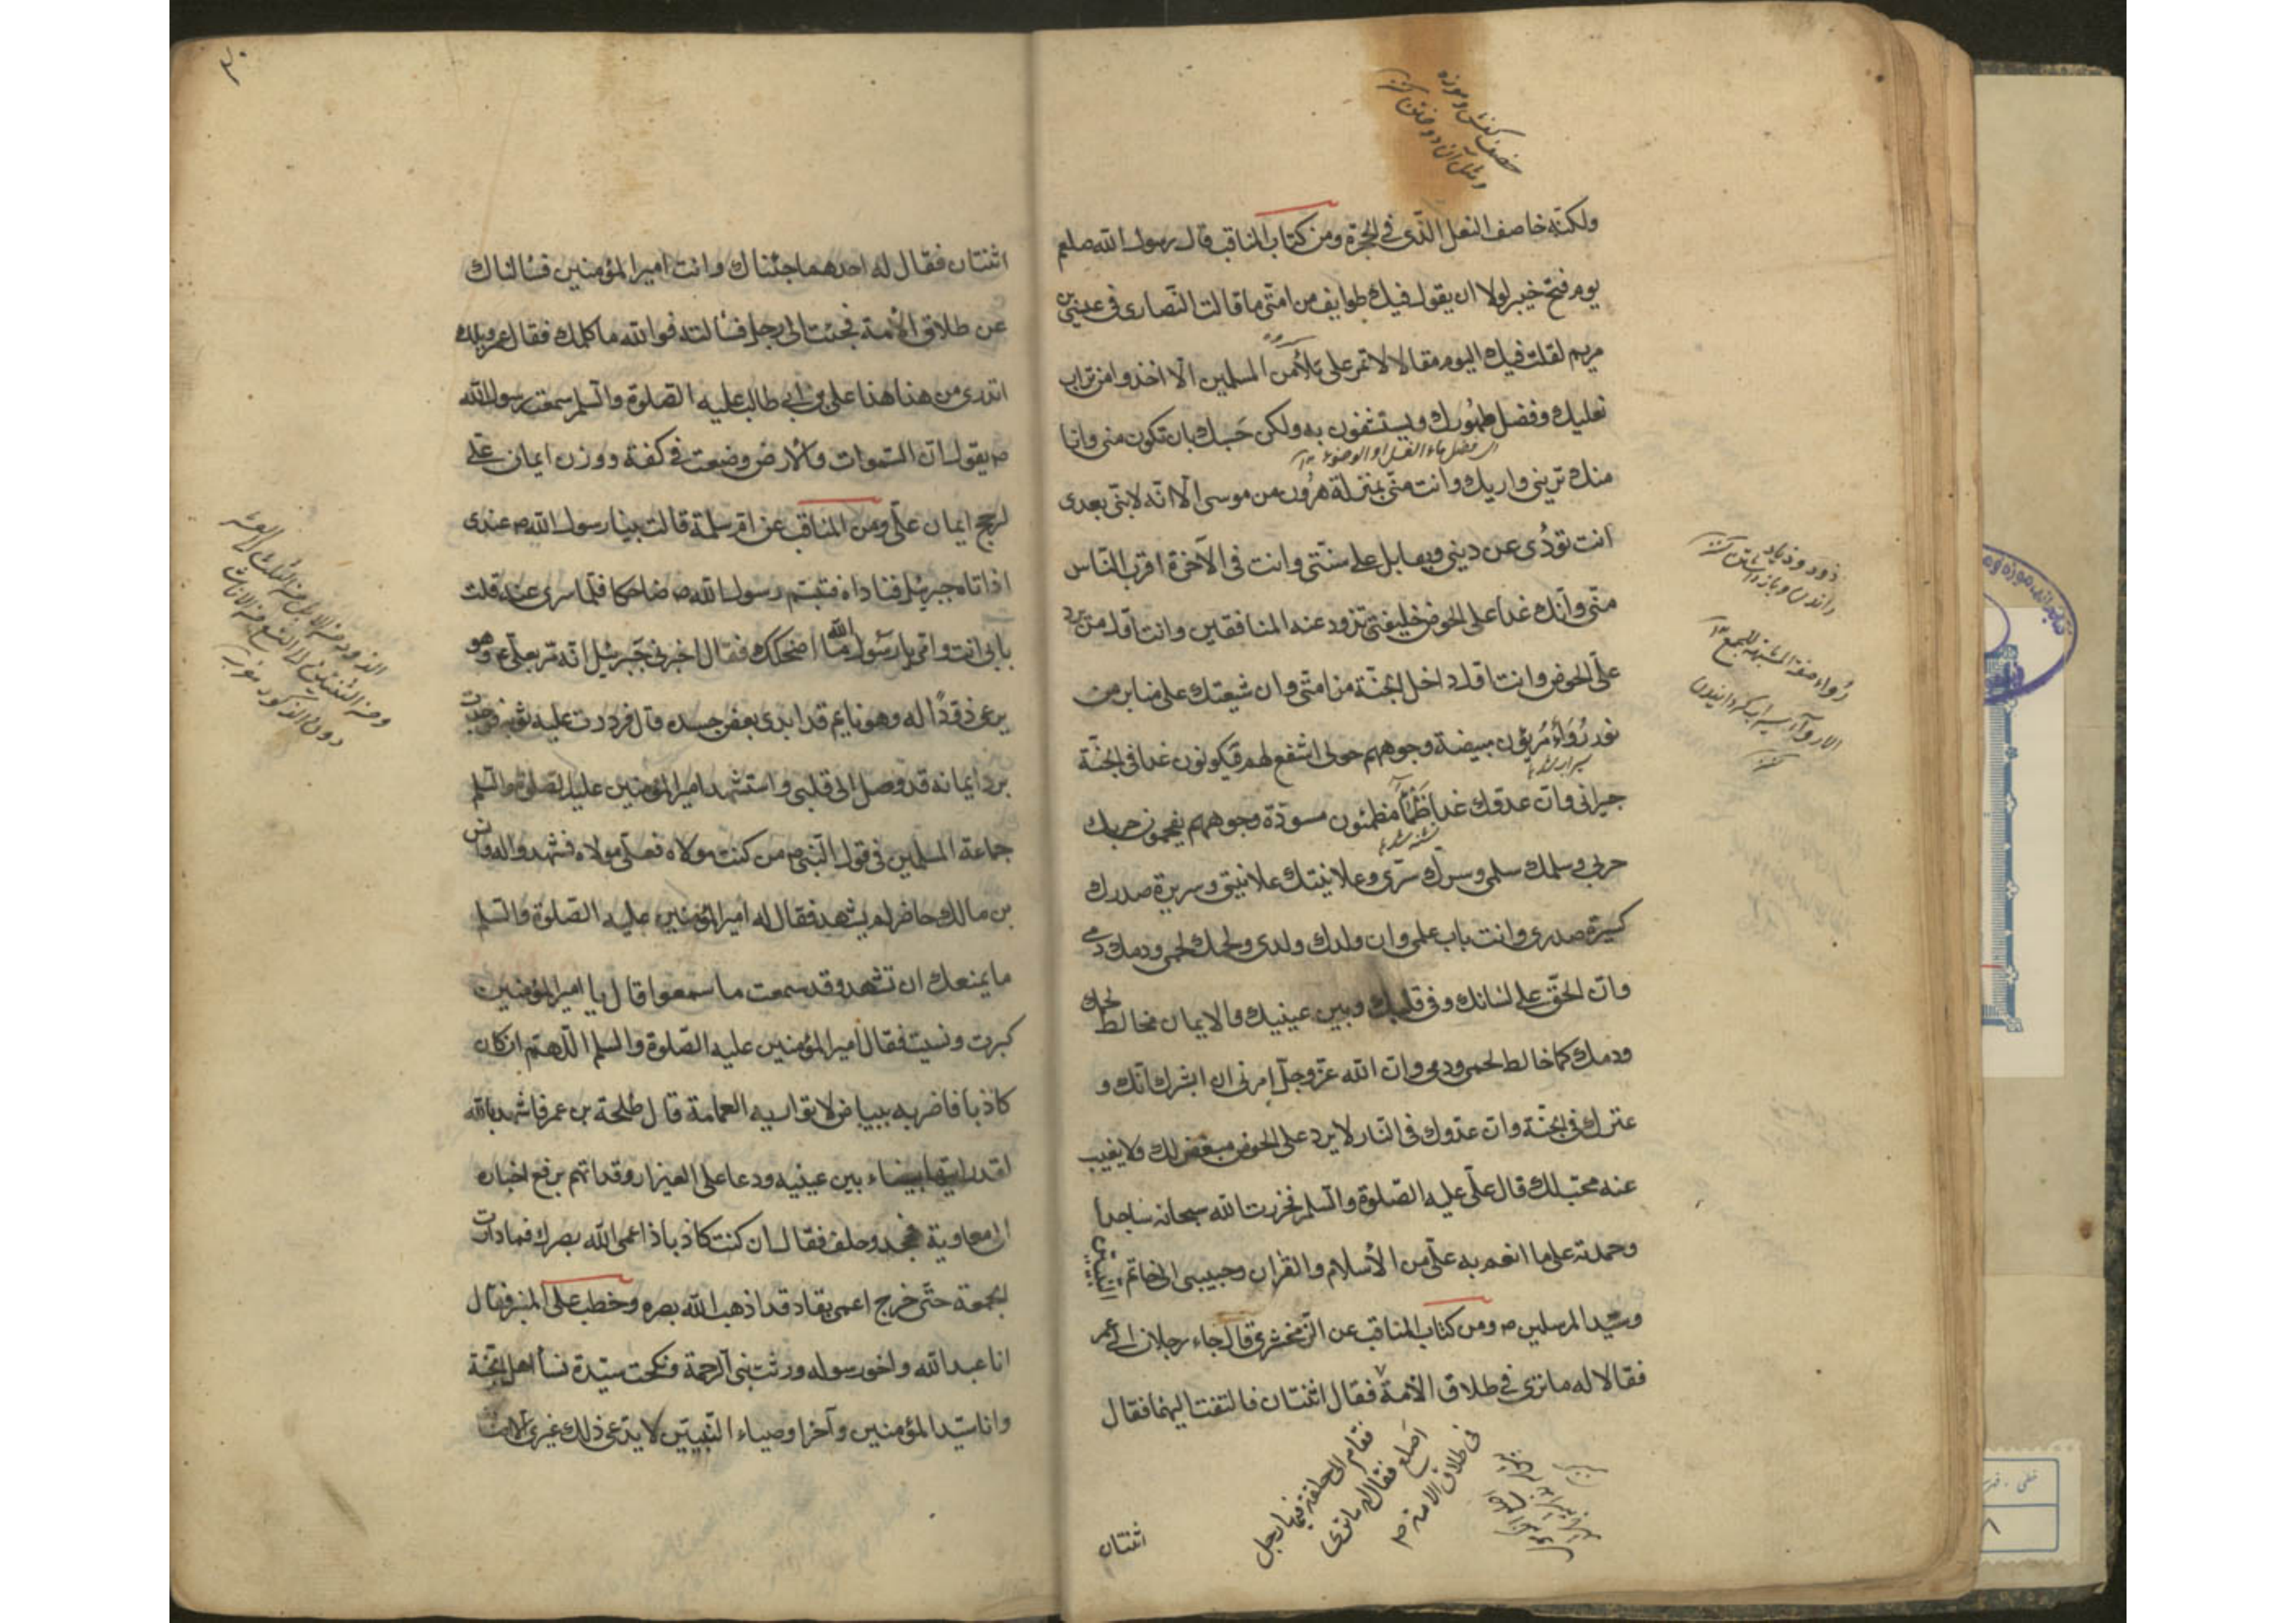 خصف كفش و موزه
و مثل آن دوختن
ولكنه خاصف النعل الذى فى الحجرة ومن كتاب المناقب قال رسول الله صلعم
يوم فتح خيبر لولا ان يقول فيك طوايف من امتى ما قالت النصارى فى عيسى بن
مريم لقلت فيك اليوم مقالا لا تمر على ملأ من المسلمين الا اخذوا من تراب
نعليك وفضل طهورك ويستشفون به ولكن حسبك بان تكون منى وانا
اى فضل ماء الغسل او الوضوء
منك ترينى واريك وانت منى بمنزلة هرون من موسى الا انه لا نبى بعدى
انت تؤدى عن دينى ويقابل على سنتى وانت فى الآخرة اقرب الناس
منى وانك غدا على الحوض خليفتى تذود عنه المنافقين وانت اول من يرد
على الحوض وانت اول داخل الجنة من امتى وان شيعتك على منابر من
نور رواء مرؤون مبيضة وجوههم حولى اشفع لهم فيكونون غدا فى الجنة
جيرانى وان عدوك غدا ظماء مظمئون مسودة وجوههم يقحمون حربك
حربى وسلمك سلمى وسرك سرى وعلانيتك علانيتى وسريرة صدرك
كسيرة صدرى وانت باب علمى وان ولدك ولدى ولحمك لحمى ودمك دمى
وان الحق على لسانك وفى قلبك وبين عينيك والايمان مخالط لحمك
ودمك كما خالط لحمى ودمى وان الله عز وجل امرنى ان ابشرك انك و
عترتك فى الجنة وان عدوك فى النار لا يرد على الحوض مبغض لك ولا يغيب
عنه محب لك قال على عليه الصلوة والسلم فخررت لله سبحانه ساجدا
وحمدته على ما انعم به على من الأسلام والقران وحببنى الى خاتم النبيين
وسيد المرسلين ص ومن كتاب المناقب عن الزمخشرى قال جاء رجلان الى عمر
فقالا له ما ترى فى طلاق الأمة فقال اثنتان فالتفت اليهما فقال
فقام الى حلقة فيها رجل
اصلع فقال ما ترى
فى طلاق الامة
اثنتان
ذود و ذياد
راندن و باز داشتن
رواء صفة المشبهة للجمع
اثنتان فقال له احدهما جئناك وانت امير المؤمنين فسألناك
عن طلاق الأمة فجئت الى رجل فسألته فوالله ما كلمك فقال عمر ويلك
اتدرى من هذا هذا على بن ابى طالب عليه الصلوة والسلم سمعت رسول الله
ص يقول ان السموات والأرض وضعت فى كفة ووزن ايمان على
لرجح ايمان على ومن المناقب عن ام سلمة قالت بينا رسول الله ص عندى
اذ اتاه جبرئيل فناداه فتبسم رسول الله ص ضاحكا فلما سرى عنه قلت
بابى انت وامى يا رسول الله ما اضحكك فقال اخبرنى جبرئيل انه مر بعلى ع وهو
يرعى ذودا له وهو نايم قد ابدى بعض جسده قال فرددت عليه ثوبه فوجدت
برد ايمانه قد وصل الى قلبى واستشهد امير المؤمنين عليه الصلوة والسلم
جماعة المسلمين فى قول النبى ص من كنت مولاه فعلى مولاه فشهدوا له وانس
بن مالك حاضر لم يشهد فقال له امير المؤمنين عليه الصلوة والسلم
ما يمنعك ان تشهد وقد سمعت ما سمعوا قال يا امير المؤمنين
كبرت ونسيت فقال امير المؤمنين عليه الصلوة والسلم اللهم ان كان
كاذبا فاضربه ببياض لا تواريه العمامة قال طلحة بن عمر فاشهد بالله
لقد رايتها بيضاء بين عينيه ودعا على العيزار وقد اتهم برفع اخباره
الى معاوية فجحد وحلف فقال ان كنت كاذبا فاعمى الله بصرك فما دارت
الجمعة حتى خرج اعمى يقاد قد اذهب الله بصره وخطب على المنبر فقال
انا عبد الله واخو رسوله ورثت نبى الرحمة ونكحت سيدة نسأ اهل الجنة
وانا سيد المؤمنين وآخر اوصياء النبيين لا يدعى ذلك غيرى الا
الذود من الابل من الثلث الى العشر
ومن الثنتين الى التسع من الاناث
دون الذكور مغرب